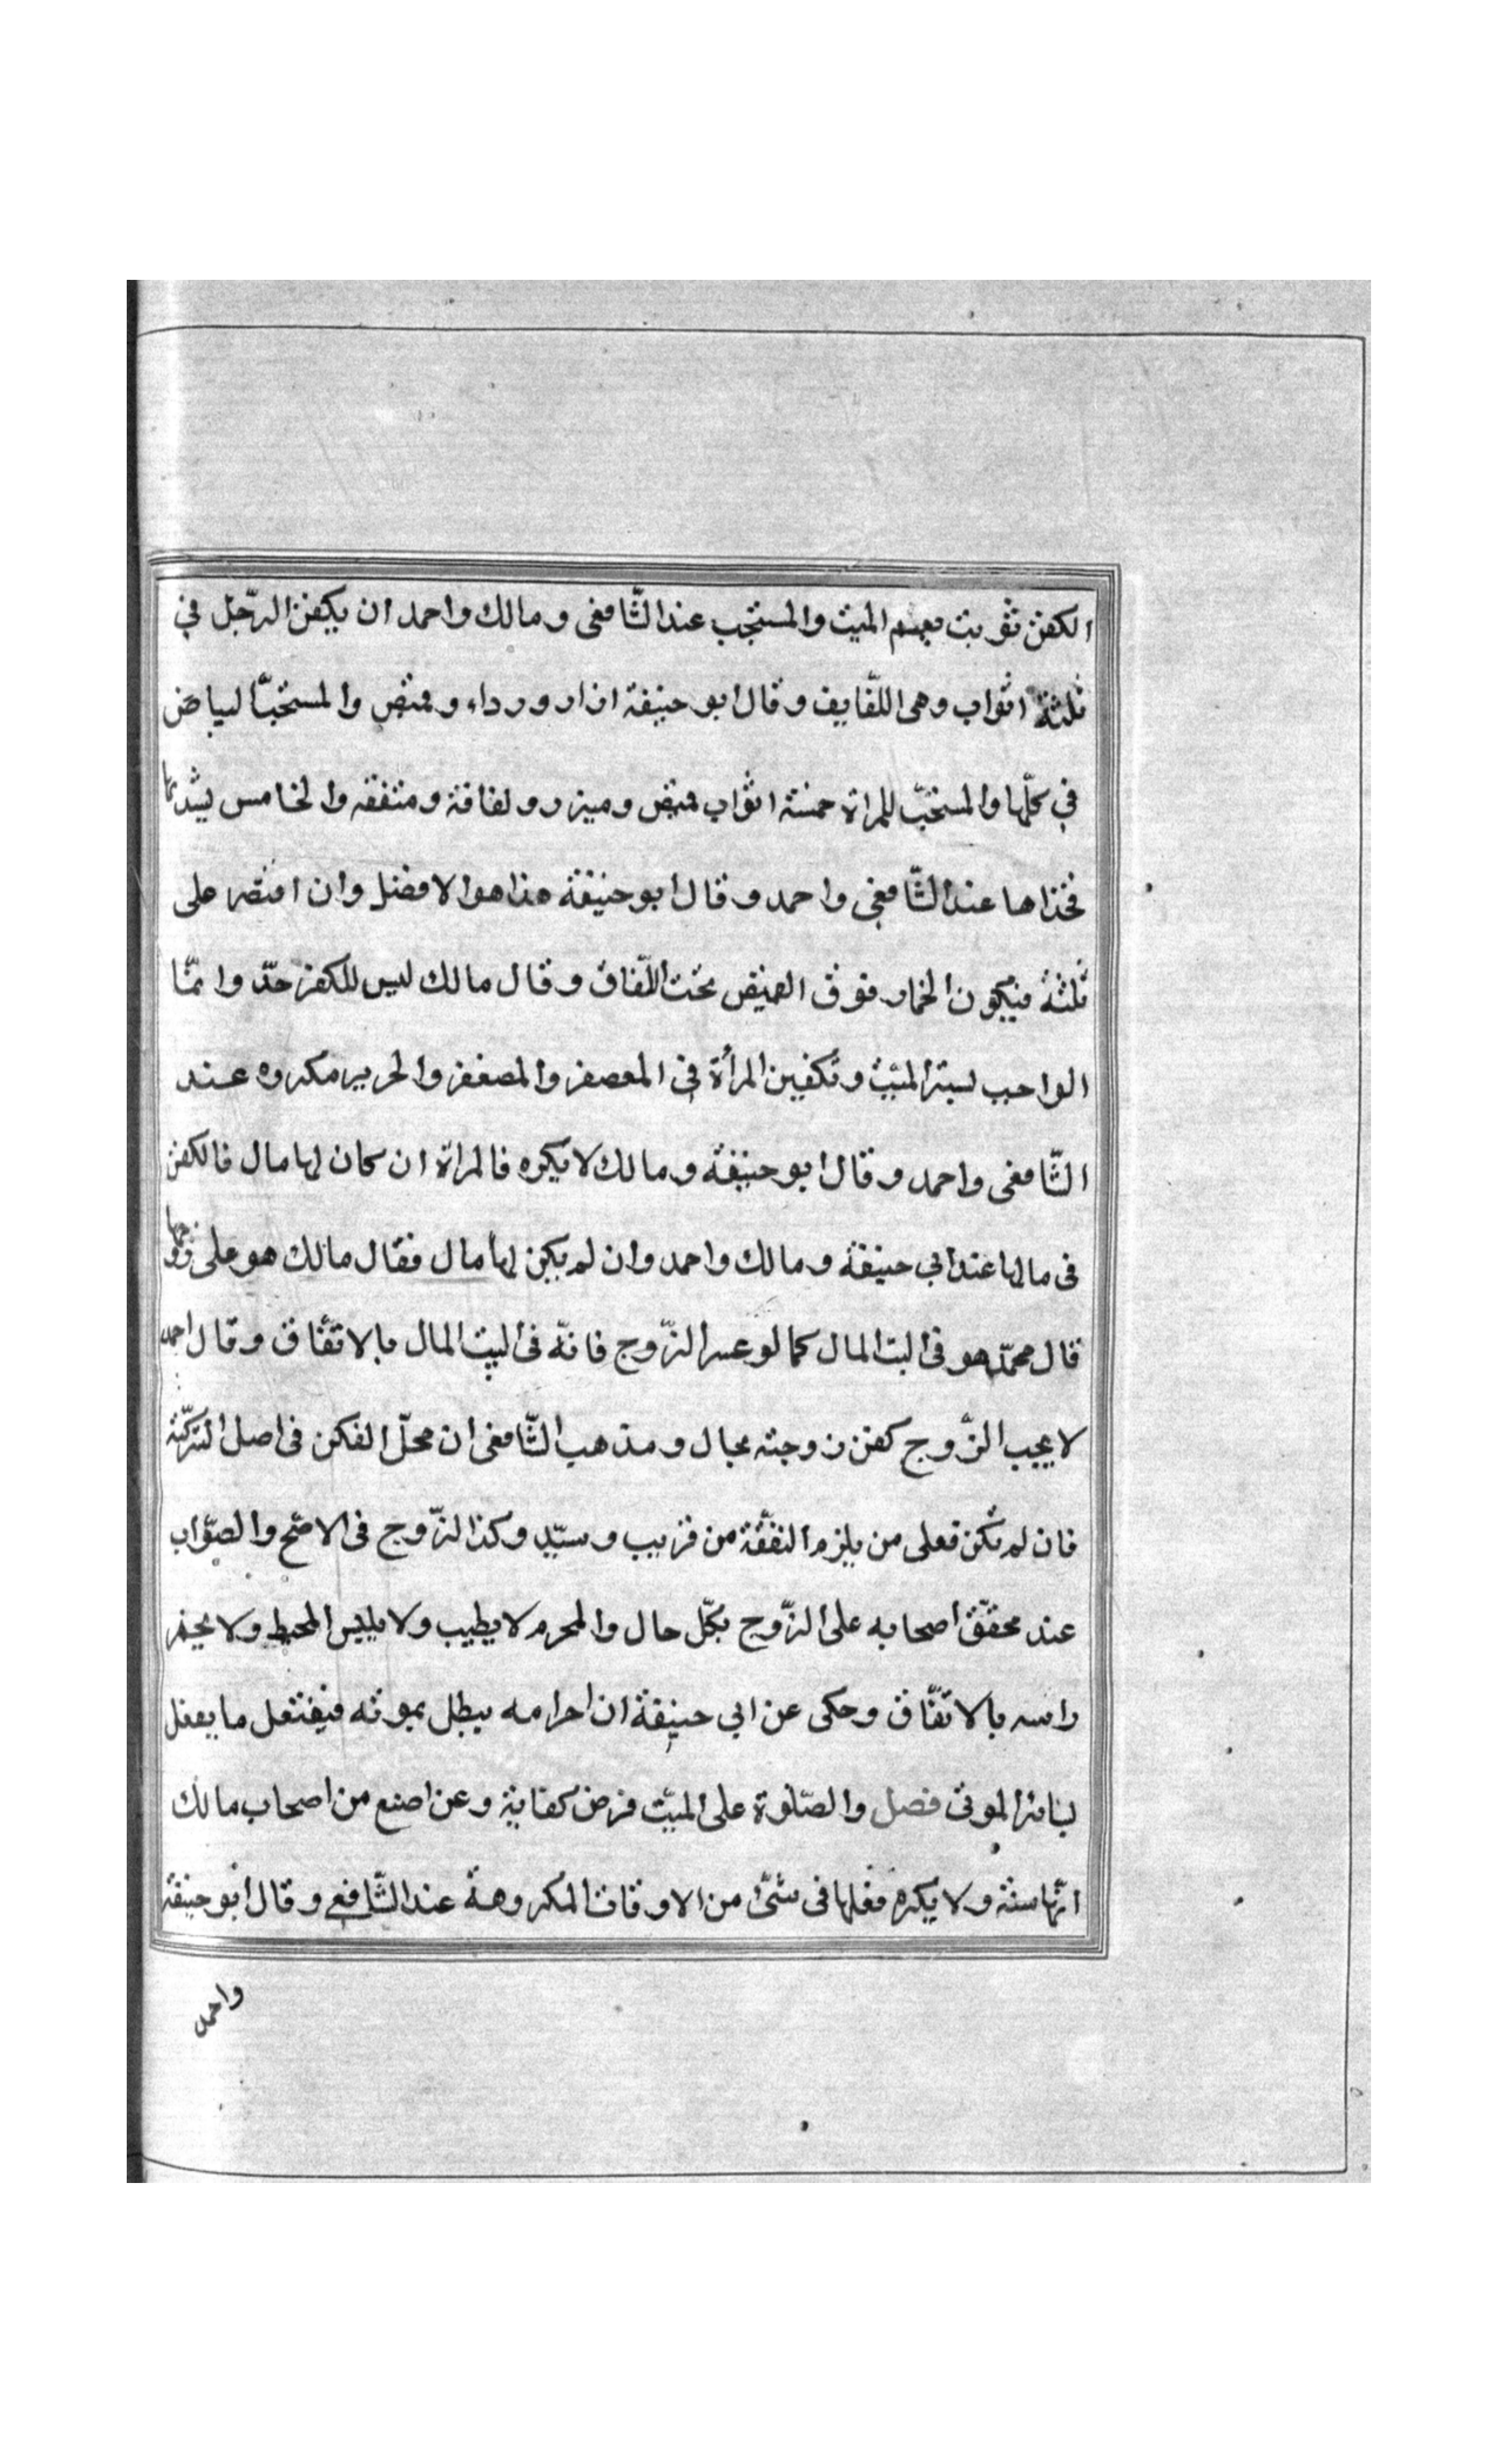 الكفن ثوب يعم الميت والمستحب عند الشافعى ومالك واحمد ان يكفن الرّجل في
ثلثة اثواب وهى اللّفايف وقال ابو حنيفة ازار ورداء وقميص والمستحبّ البياض
في كلّها والمستحبّ للمراة خمسة اثواب قميص وميزر ولفافة ومتفقه والخامس يشد بها
فخذاها عند الشّافعي واحمد وقال ابو حنيفة هذا هو الافضل وان اقتصر على
ثلثة فيكون الخمار فوق القميص تحت اللّفاف وقال مالك ليس للكفن حدّ وانّما
الواجب لستر الميّت وتكفين المرأة في المعصفر والمصغفر والحرير مكروه عند
الشّافعى واحمد وقال ابو حنيفة ومالك لا يكره فالمراة ان كان لها مال فالكفن
فى مالها عند ابي حنيفة ومالك واحمد وان لم يكن لها مال فقال مالك هو على زوجها
قال محمّد هو فى البت المال كما لو عسر الزّوج فانّه فى البيت المال بالاتّفاق وقال احمد
لا يجب الزّوج كفن زوجته بحال ومذهب الشّافعى ان محلّ الفكن فى اصل التركّة
فان لم تكن فعلى من يلزم النفقّة من قريب وسيّد وكذا الزّوج فى الاصّح والصّواب
عند محقّق اصحابه على الزّوج بكلّ حال والمحرم لا يطيب ولا يلبس المحيط ولا يخمر
راسه بالاتفّاق وحكى عن ابي حنيفة ان احرامه يبطل بموته فيفتعل ما يفعل
بسائر الموتى فصل والصّلوة على الميّت فرض كفاية وعن اصبع من اصحاب مالك
انّها سنة ولا يكره فعلها فى شئ من الاوقات المكروهة عند الشّافعي وقال ابو حنيفة
واحمد